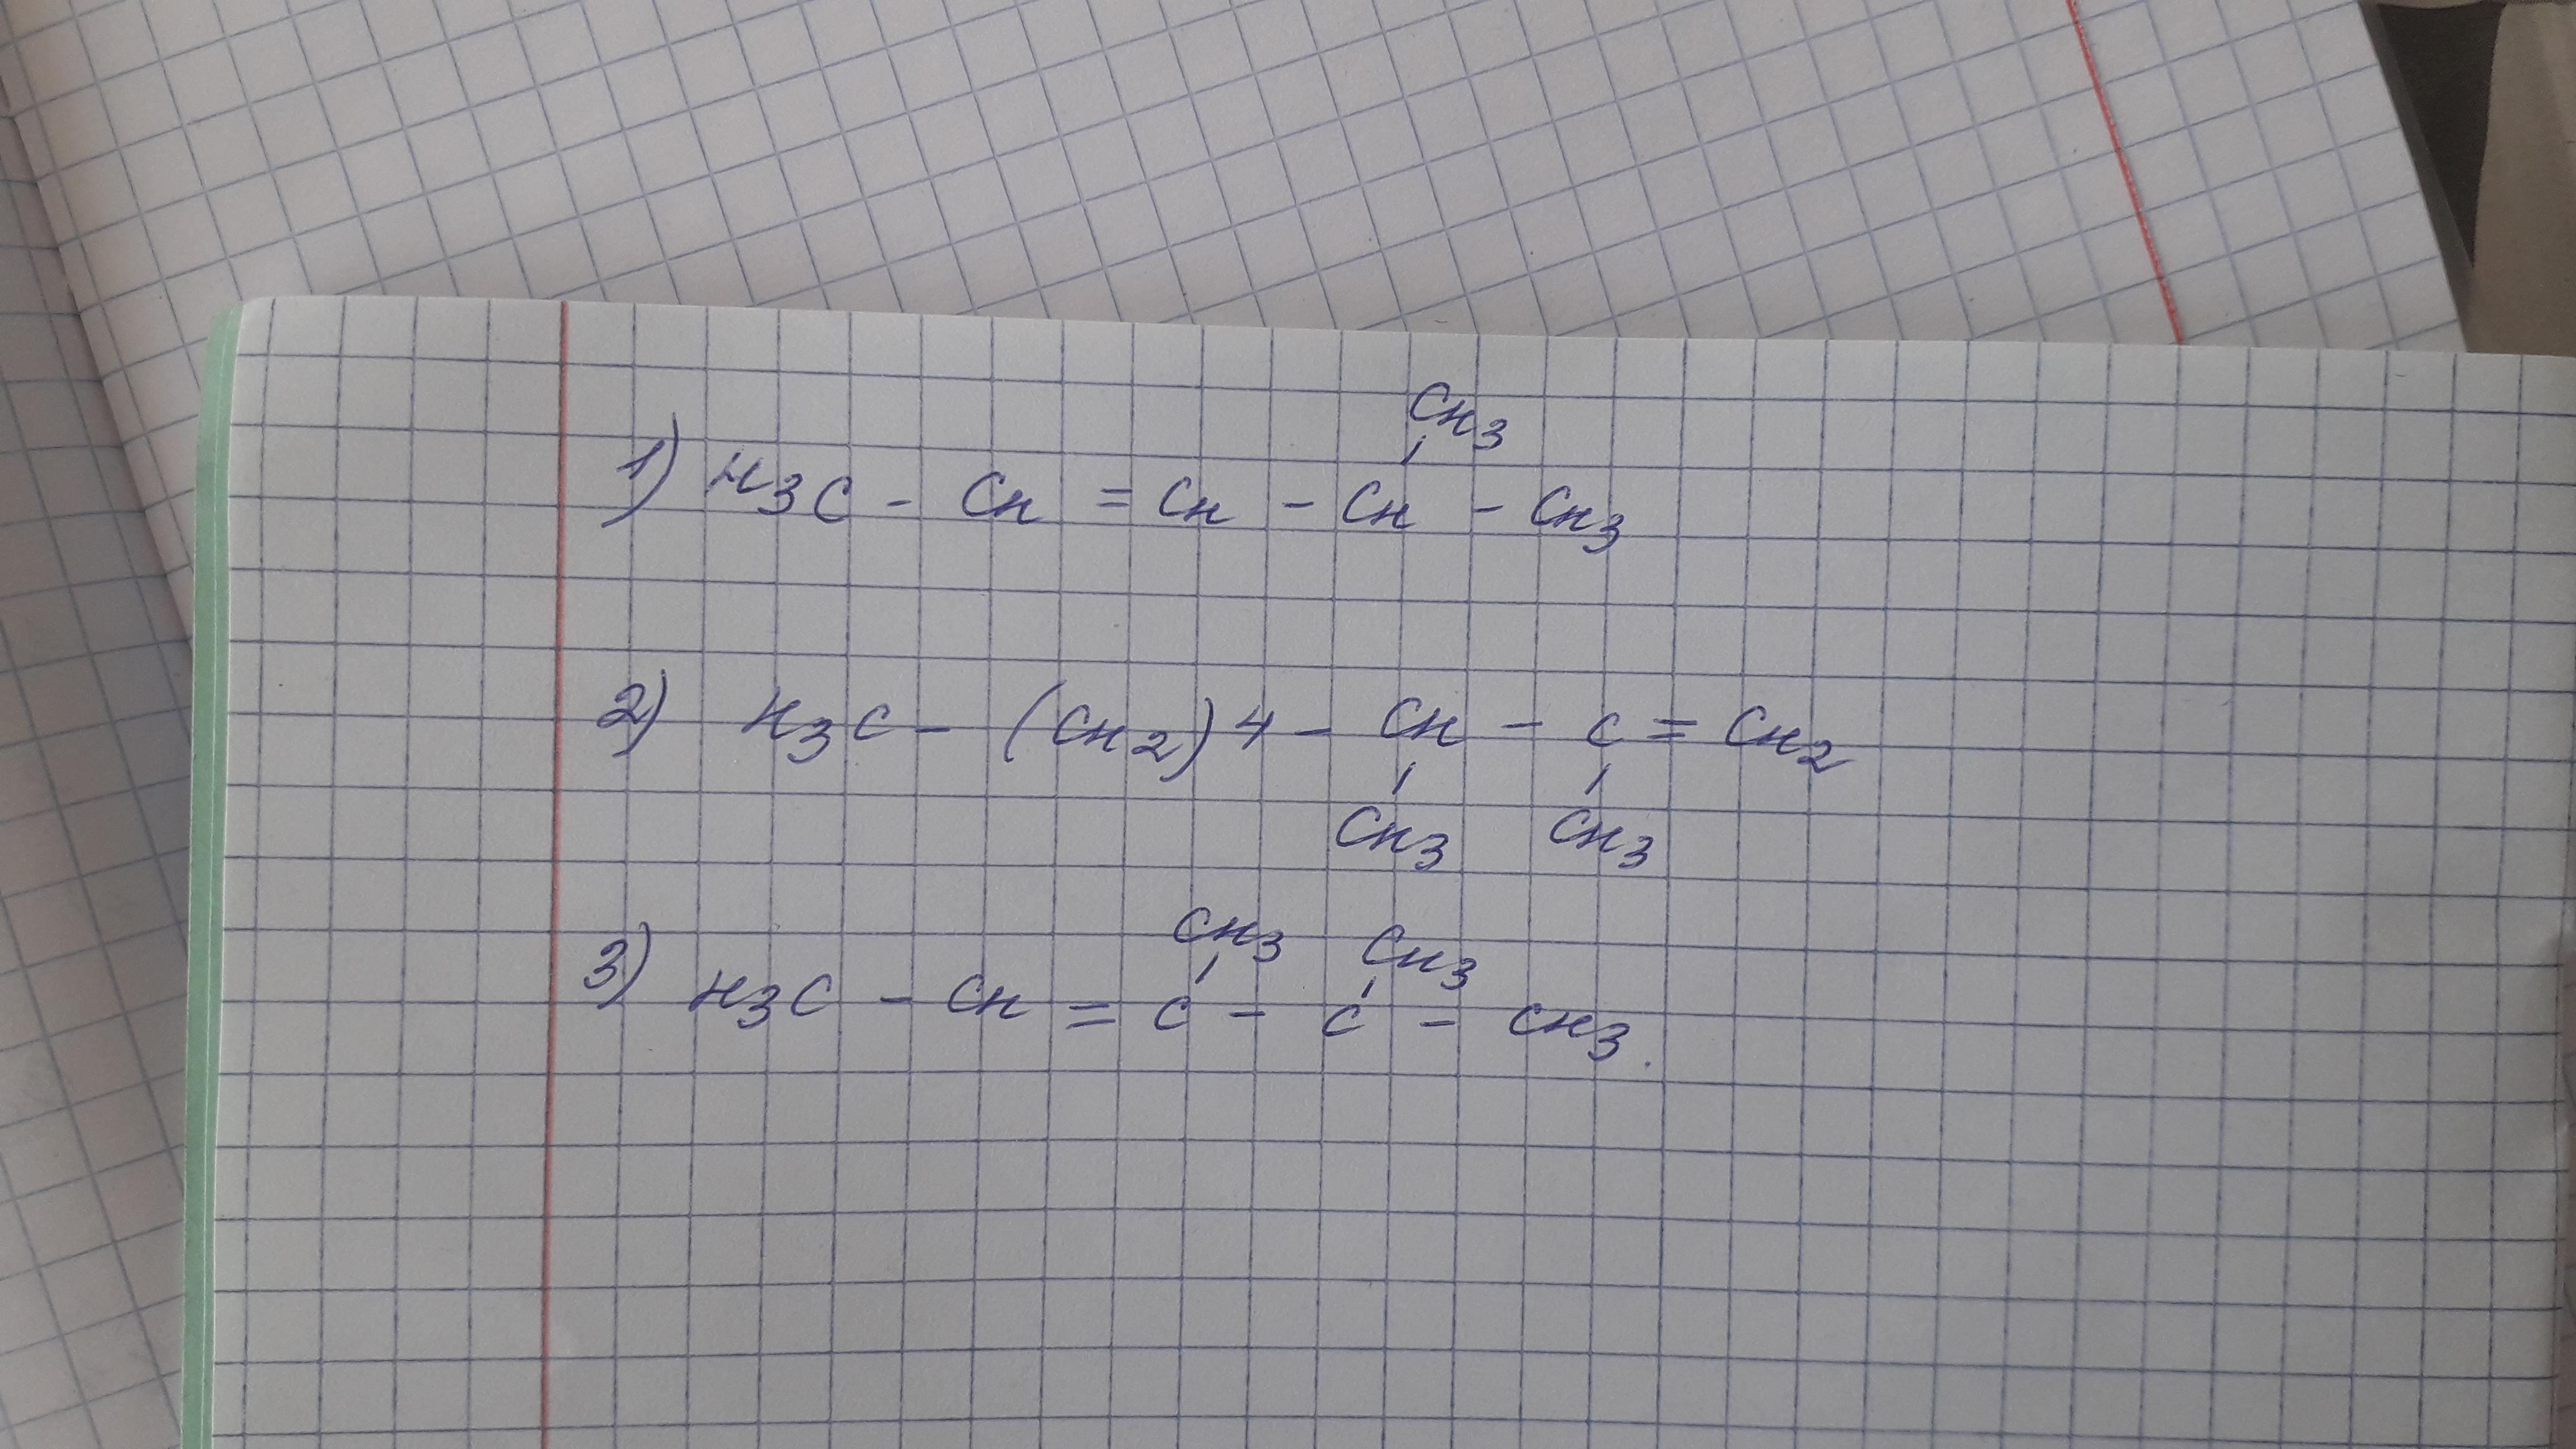 CH3
1) H3C - CH = CH - CH - CH3
2) H3C - (CH2)4 - CH - C = CH2
CH3 CH3
CH3 CH3
3) H3C - CH = C - C - CH3.